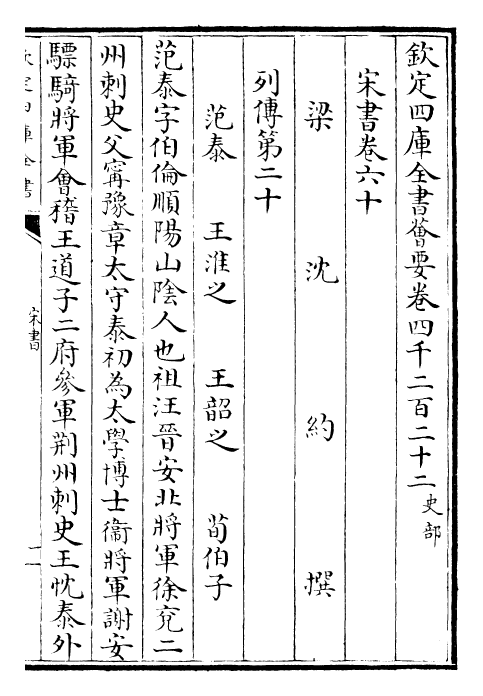 欽定四庫全書薈要卷四千二百二十二史部
宋書卷六十
梁沈約撰
列傳第二十
范泰 王淮之 王韶之 荀伯子
范泰字伯倫順陽山陰人也祖汪晉安北將軍徐兖二
州刺史父甯豫章太守泰初為太學博士衞將軍謝安
驃騎將軍會稽王道子二府參軍荆州刺史王忱泰外
欽定四庫全書
宋書